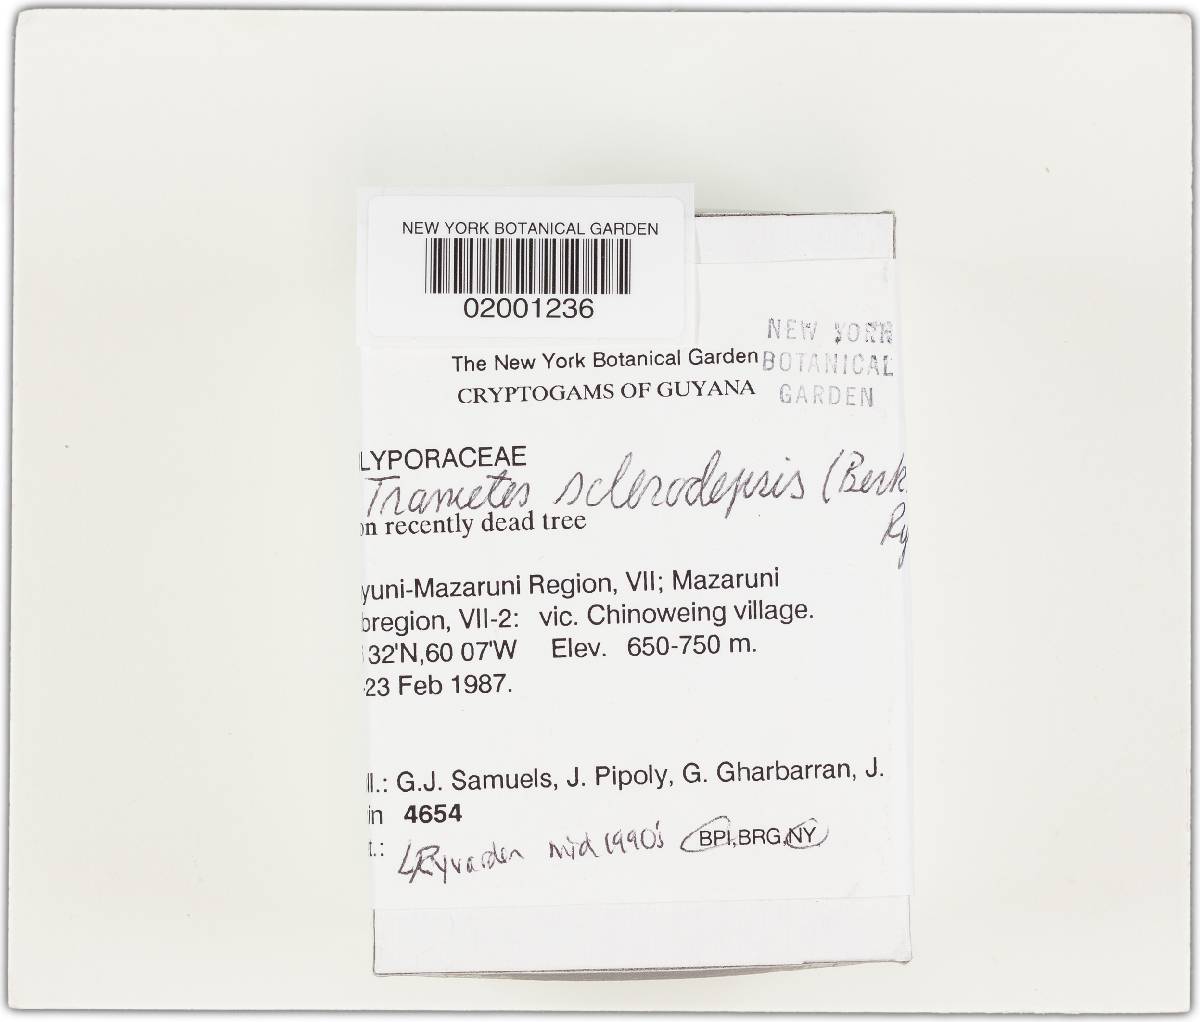 NEW YORK BOTANICAL GARDEN
02001236
NEW YORK
BOTANICAL
GARDEN
The New York Botanical Garden
CRYPTOGAMS OF GUYANA
LYPORACEAE
Trametes sclerodepsis (Berk.
Ry
on recently dead tree
yuni-Mazaruni Region, VII; Mazaruni
bregion, VII-2: vic. Chinoweing village.
32'N,60 07'W Elev. 650-750 m.
-23 Feb 1987.
ll.: G.J. Samuels, J. Pipoly, G. Gharbarran, J.
in 4654
t.: L Ryvarden mid 1990's BPI,BRG,NY